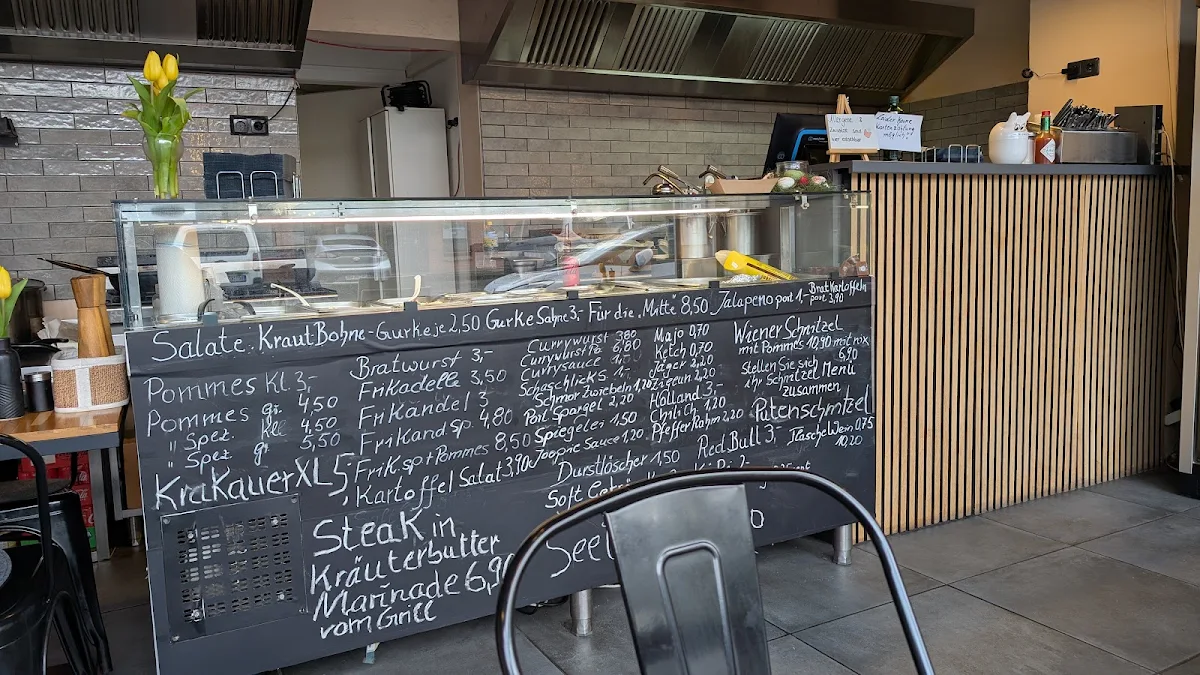 Salate: Kraut Bohne - Gurkeje 2,50 Gurke Sahne 3,- Für die „Mitte" 8,50 Jalapeno port 1,- Bratkartoffeln
port 3,90
Pommes Kl. 3,-
Pommes gr. 4,50
" Spez. Kl. 4,50
" Spez. gr. 5,50
KraKauer XL 5,
Bratwurst 3,-
FriKadelle 3,50
FriKandel 3
FriKand sp. 4,80
FriK. sp + Pommes 8,50
Kartoffel Salat 3,90
Currywurst 3,80
Currywurst Po 6,80
Currysauce
Schaschlick S 1,-
Schmor Zwiebeln 1,20
Port Spargel 2,20
Spiegelei 1,50
Joopie Sauce 1,20
Durstlöscher 1,50
Soft
Majo 0,70
Ketch 0,70
Jäger 2,20
Zigeun 2,20
Holland 3,-
Chili Ch 1,20
Pfeffer Rahm 2,20
Red Bull 3,-
Wiener Schnitzel
mit Pommes 10,90 mit rox
Stellen Sie sich 6,90
ihr Schnitzel Menü
zusammen
Putenschnitzel
Flasche Wein 0,75
10,20
Steak in
Kräuterbutter
Marinade 6,90
vom Grill